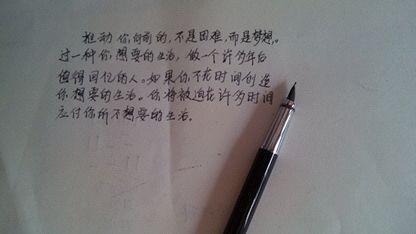 推动你向前的，不是困难，而是梦想。
过一种你想要的生活，做一个许多年后
值得回忆的人。如果你不花时间创造
你想要的生活。你将被迫花许多时间
应付你所不想要的生活。